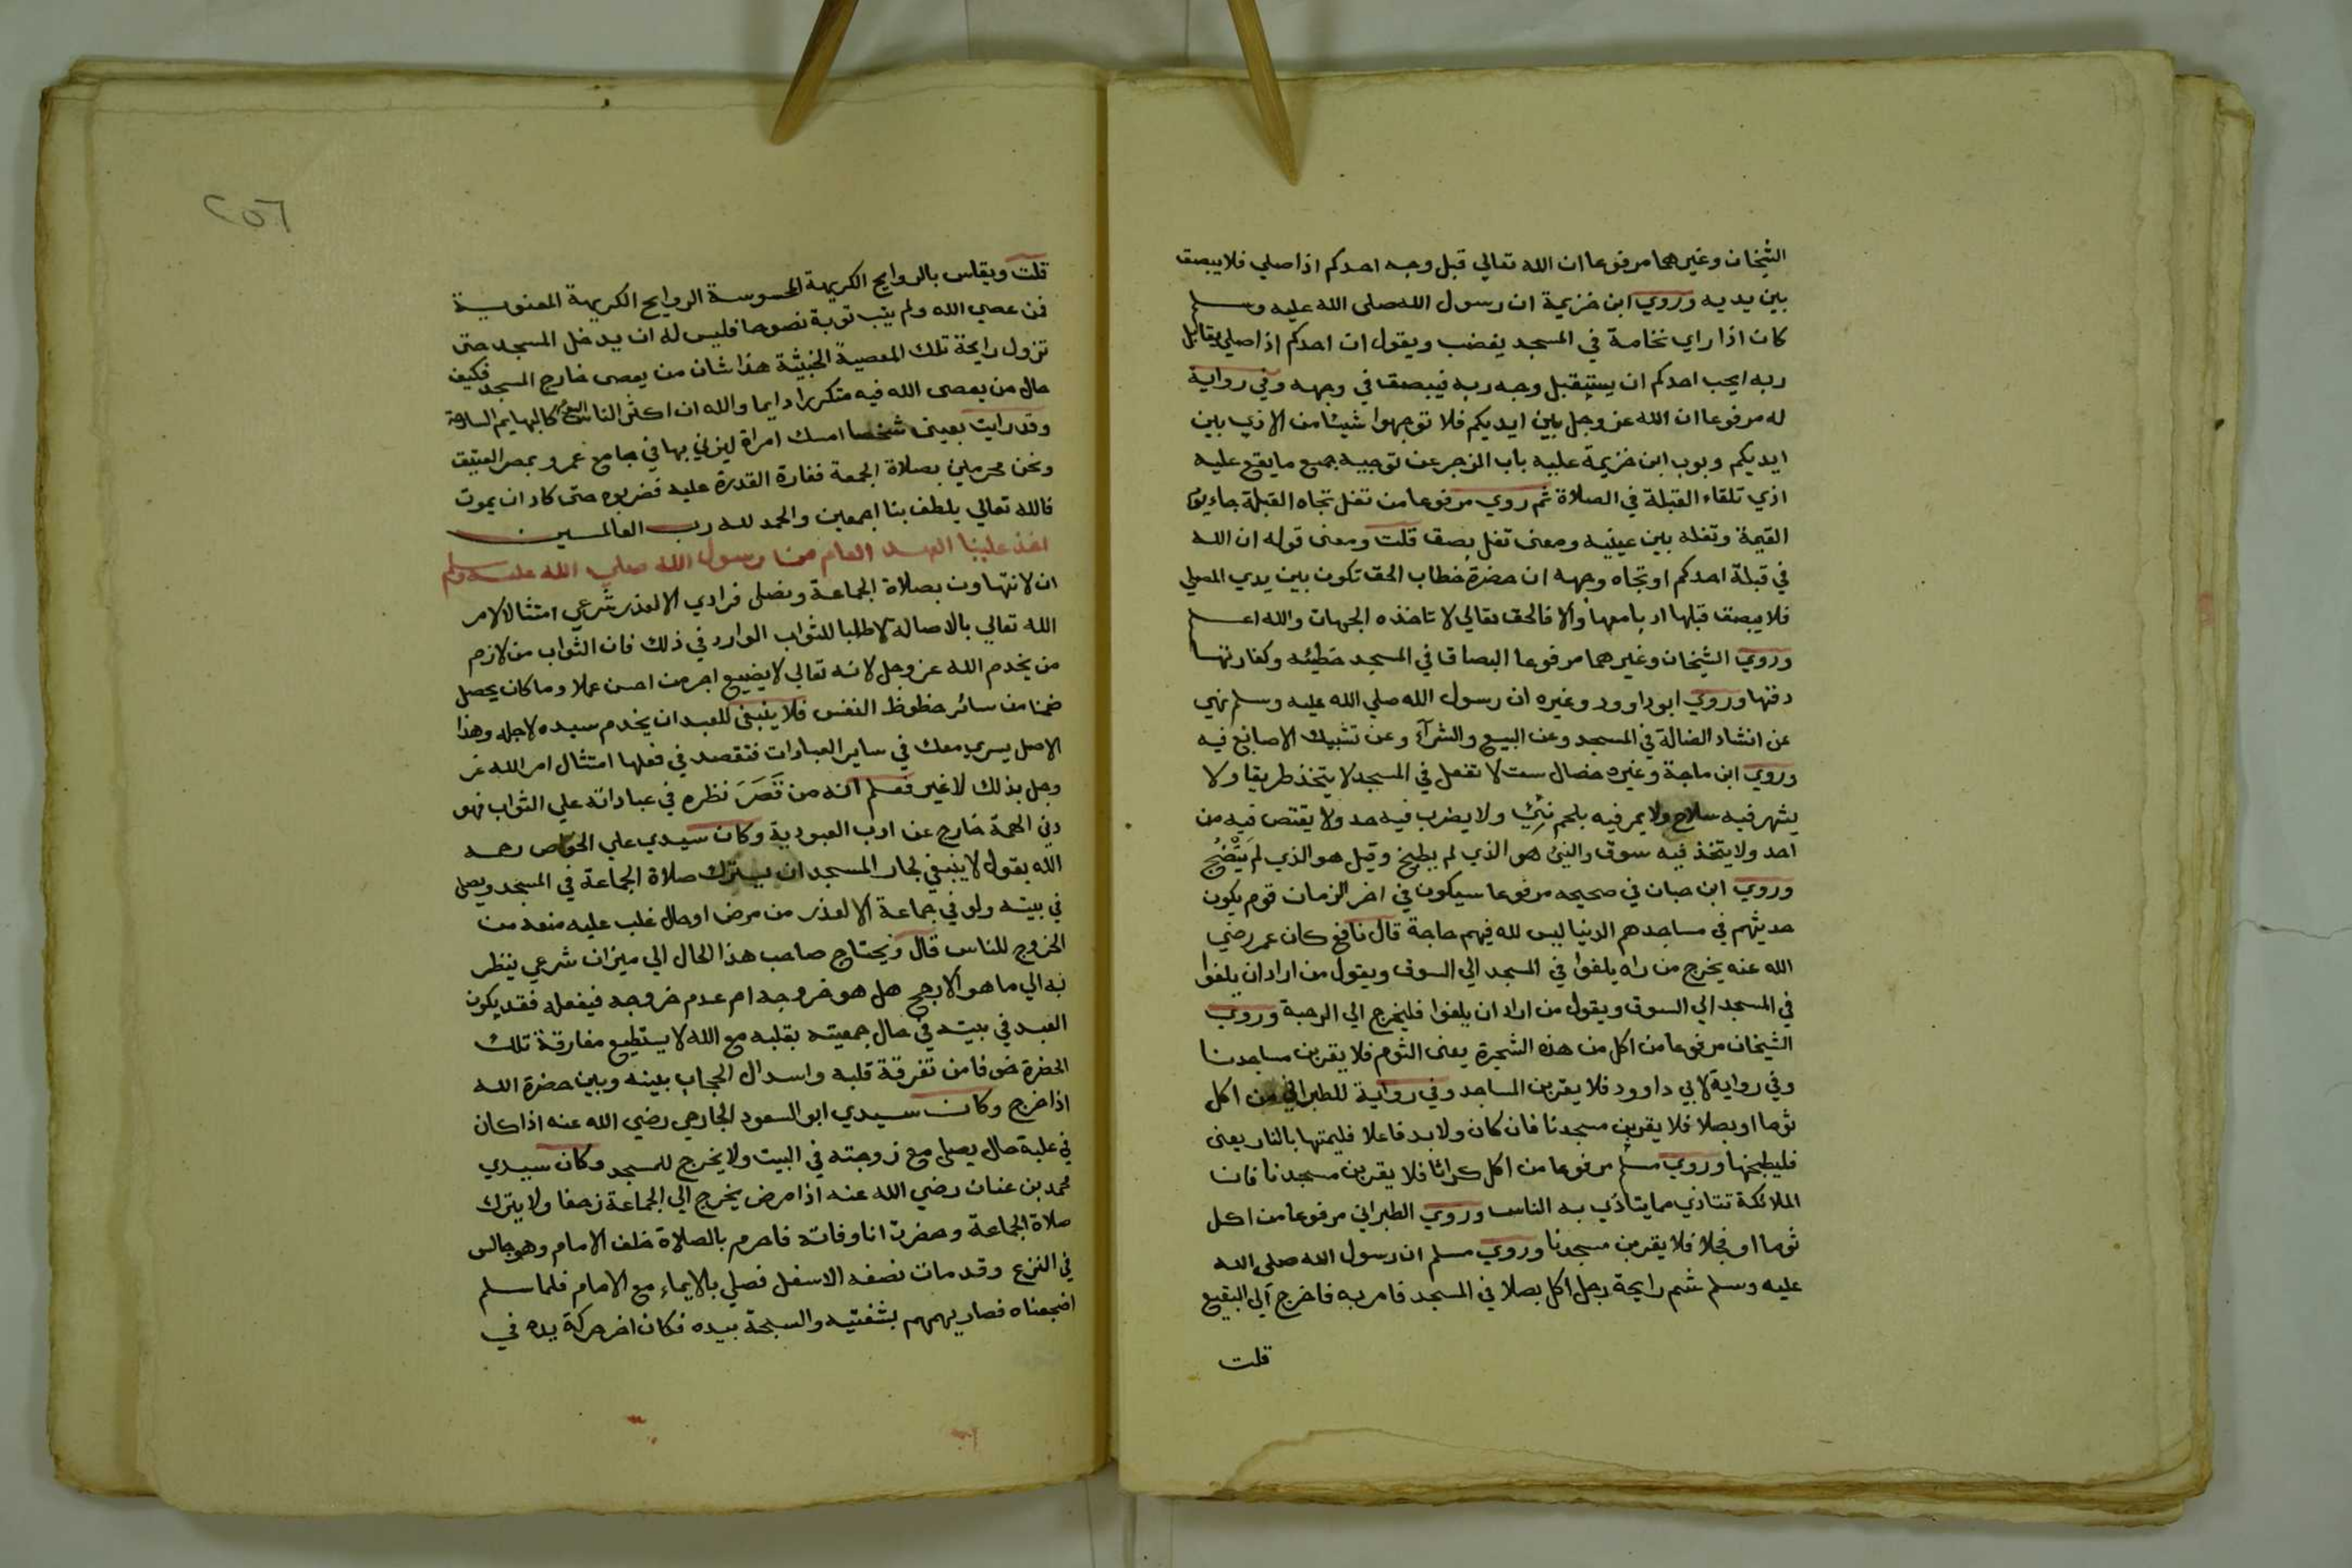 الشيخان وغيرهما مرفوعا ان الله تعالي قبل وجه احدكم اذا صلي فلا يبصق
بين يديه وروي ابن خزيمة ان رسول الله صلى الله عليه وسلم
كان اذا راي نخامة في المسجد يغضب ويقول ان احدكم اذا صلي يقابل
ربه ايحب احدكم ان يستقبل وجه ربه فيبصق في وجهه وفي رواية
له مرفوعا ان الله عز وجل بين ايديكم فلا توجهوا شيئا من الاذي بين
ايديكم وبوب ابن خزيمة عليه باب الزجر عن توجيه جميع ما يقع عليه
اذي تلقاء القبلة في الصلاة ثم روي مرفوعا من تفل تجاه القبلة جاء يوم
القيمة وتفله بين عينيه ومعنى تفل بصق قلت ومعنى قوله ان الله
في قبلة احدكم او تجاه وجهه ان حضرة خطاب الحق تكون بين يدي المصلي
فلا يبصق قبلها ادبا معها والا فالحق تعالي لا تاخذه الجهات والله اعلم
وروي الشيخان وغيرهما مرفوعا البصاق في المسجد خطيئه وكفارتها
دفنها وروي ابو داوود وغيره ان رسول الله صلي الله عليه وسلم نهي
عن انشاد الضالة في المسجد وعن البيع والشرآء وعن تشبيك الاصابع فيه
وروي ابن ماجة وغيره خصال ست لا تفعل في المسجد لا يتخذ طريقا ولا
يشهر فيه سلاح ولا يمر فيه بلحم نئ ولا يضرب فيه حد ولا يقتص فيه من
احد ولا يتخذ فيه سوق والنئ هو الذي لم يطبخ وقيل هو الذي لم ينضج
وروي ابن حبان في صحيحه مرفوعا سيكون في اخر الزمان قوم يكون
حديثهم في مساجدهم الدنيا ليس لله فيهم حاجة قال نافع كان عمر رضي
الله عنه يخرج من راه يلغوا في المسجد الي السوق ويقول من اراد ان يلغوا
في المسجد الي السوق ويقول من اراد ان يلغوا فليخرج الي الرحبة وروي
الشيخان مرفوعا من اكل من هذه الشجرة يعنى الثوم فلا يقربن مساجدنا
وفي رواية لابي داوود فلا يقربن المساجد وفي رواية للطبراني من اكل
ثوما او بصلا فلا يقربن مسجدنا فان كان ولا بد فاعلا فليمتها بالنار يعنى
فليطبخها وروي مسلم مرفوعا من اكل كراثا فلا يقربن مسجدنا فان
الملائكة تتاذي مما يتاذي به الناس وروي الطبراني مرفوعا من اكل
ثوما او فجلا فلا يقربن مسجدنا وروي مسلم ان رسول الله صلى الله
عليه وسلم شم رايحة رجل اكل بصلا في المسجد فامر به فاخرج الي البقيع
قلت
٢٥٦
قلت ويقاس بالروايح الكريهة المحسوسة الروايح الكريهة المعنوية
فمن عصي الله ولم يتب توبة نصوحا فليس له ان يدخل المسجد حتى
تزول رايحة تلك المعصية الخبيثة هذا شان من يعصى خارج المسجد فكيف
حال من يعصى الله فيه متكررا دايما والله ان اكثر الناس اليوم كالبهايم السارحة
وقد رايت بعينى شخصا امسك امراة ليزني بها في جامع عمرو بمصر العتيق
ونحن محرمين بصلاة الجمعة القدرة عليه فضربوه حتى كاد ان يموت
فالله تعالي يلطف بنا اجمعين والحمد لله رب العالمين
اخذ علينا العهد العام من رسول الله صلي الله عليه وسلم
ان لا نتهاون بصلاة الجماعة ونصلى فرادي الا لعذر شرعي امتثالا لامر
الله تعالي بالاصالة لا طلبا للثواب الوارد في ذلك فان الثواب من لازم
من يخدم الله عز وجل لانه تعالي لا يضيع اجر من احسن عملا وما كان يحصل
ضمنا من سائر حظوظ النفس فلا ينبغى للعبد ان يخدم سيده لاجله وهذا
الاصل يسري معك في ساير العبادات فتقصد في فعلها امتثال امر الله عز
وجل بذلك لا غير فعلم انه من قصر نظره في عباداته علي الثواب فهو
دني الهمة خارج عن ادب العبودية وكان سيدي علي الخواص رحمه
الله يقول لا ينبغي لجار المسجد ان يترك صلاة الجماعة في المسجد ويصلى
في بيته ولو في جماعة الا لعذر من مرض او حال غلب عليه منعه من
الخروج للناس قال ويحتاج صاحب هذا الحال الي ميزان شرعي ينظر
به الي ما هو الارجح هل هو خروجه ام عدم خروجه فيفعله فقد يكون
العبد في بيته في حال جمعيته بقلبه مع الله لا يستطيع مفارقة تلك
الحضرة خوفا من تفرقة قلبه واسدال الحجاب بينه وبين حضرة الله
اذا خرج وكان سيدي ابو السعود الجارحي رضي الله عنه اذا كان
في غلبة حال يصلى مع زوجته في البيت ولا يخرج للمسجد وكان سيدي
محمد بن عنان رضي الله عنه اذا مرض يخرج الي الجماعة زحفا ولا يترك
صلاة الجماعة وحضرت انا وفاته فاحرم بالصلاة خلف الامام وهو جالس
في النزع وقد مات نصفه الاسفل فصلي بالايماء مع الامام فلما سلم
اضجعناه فصار يهمهم بشفتيه والسبحة بيده فكان اخر حركة يده في